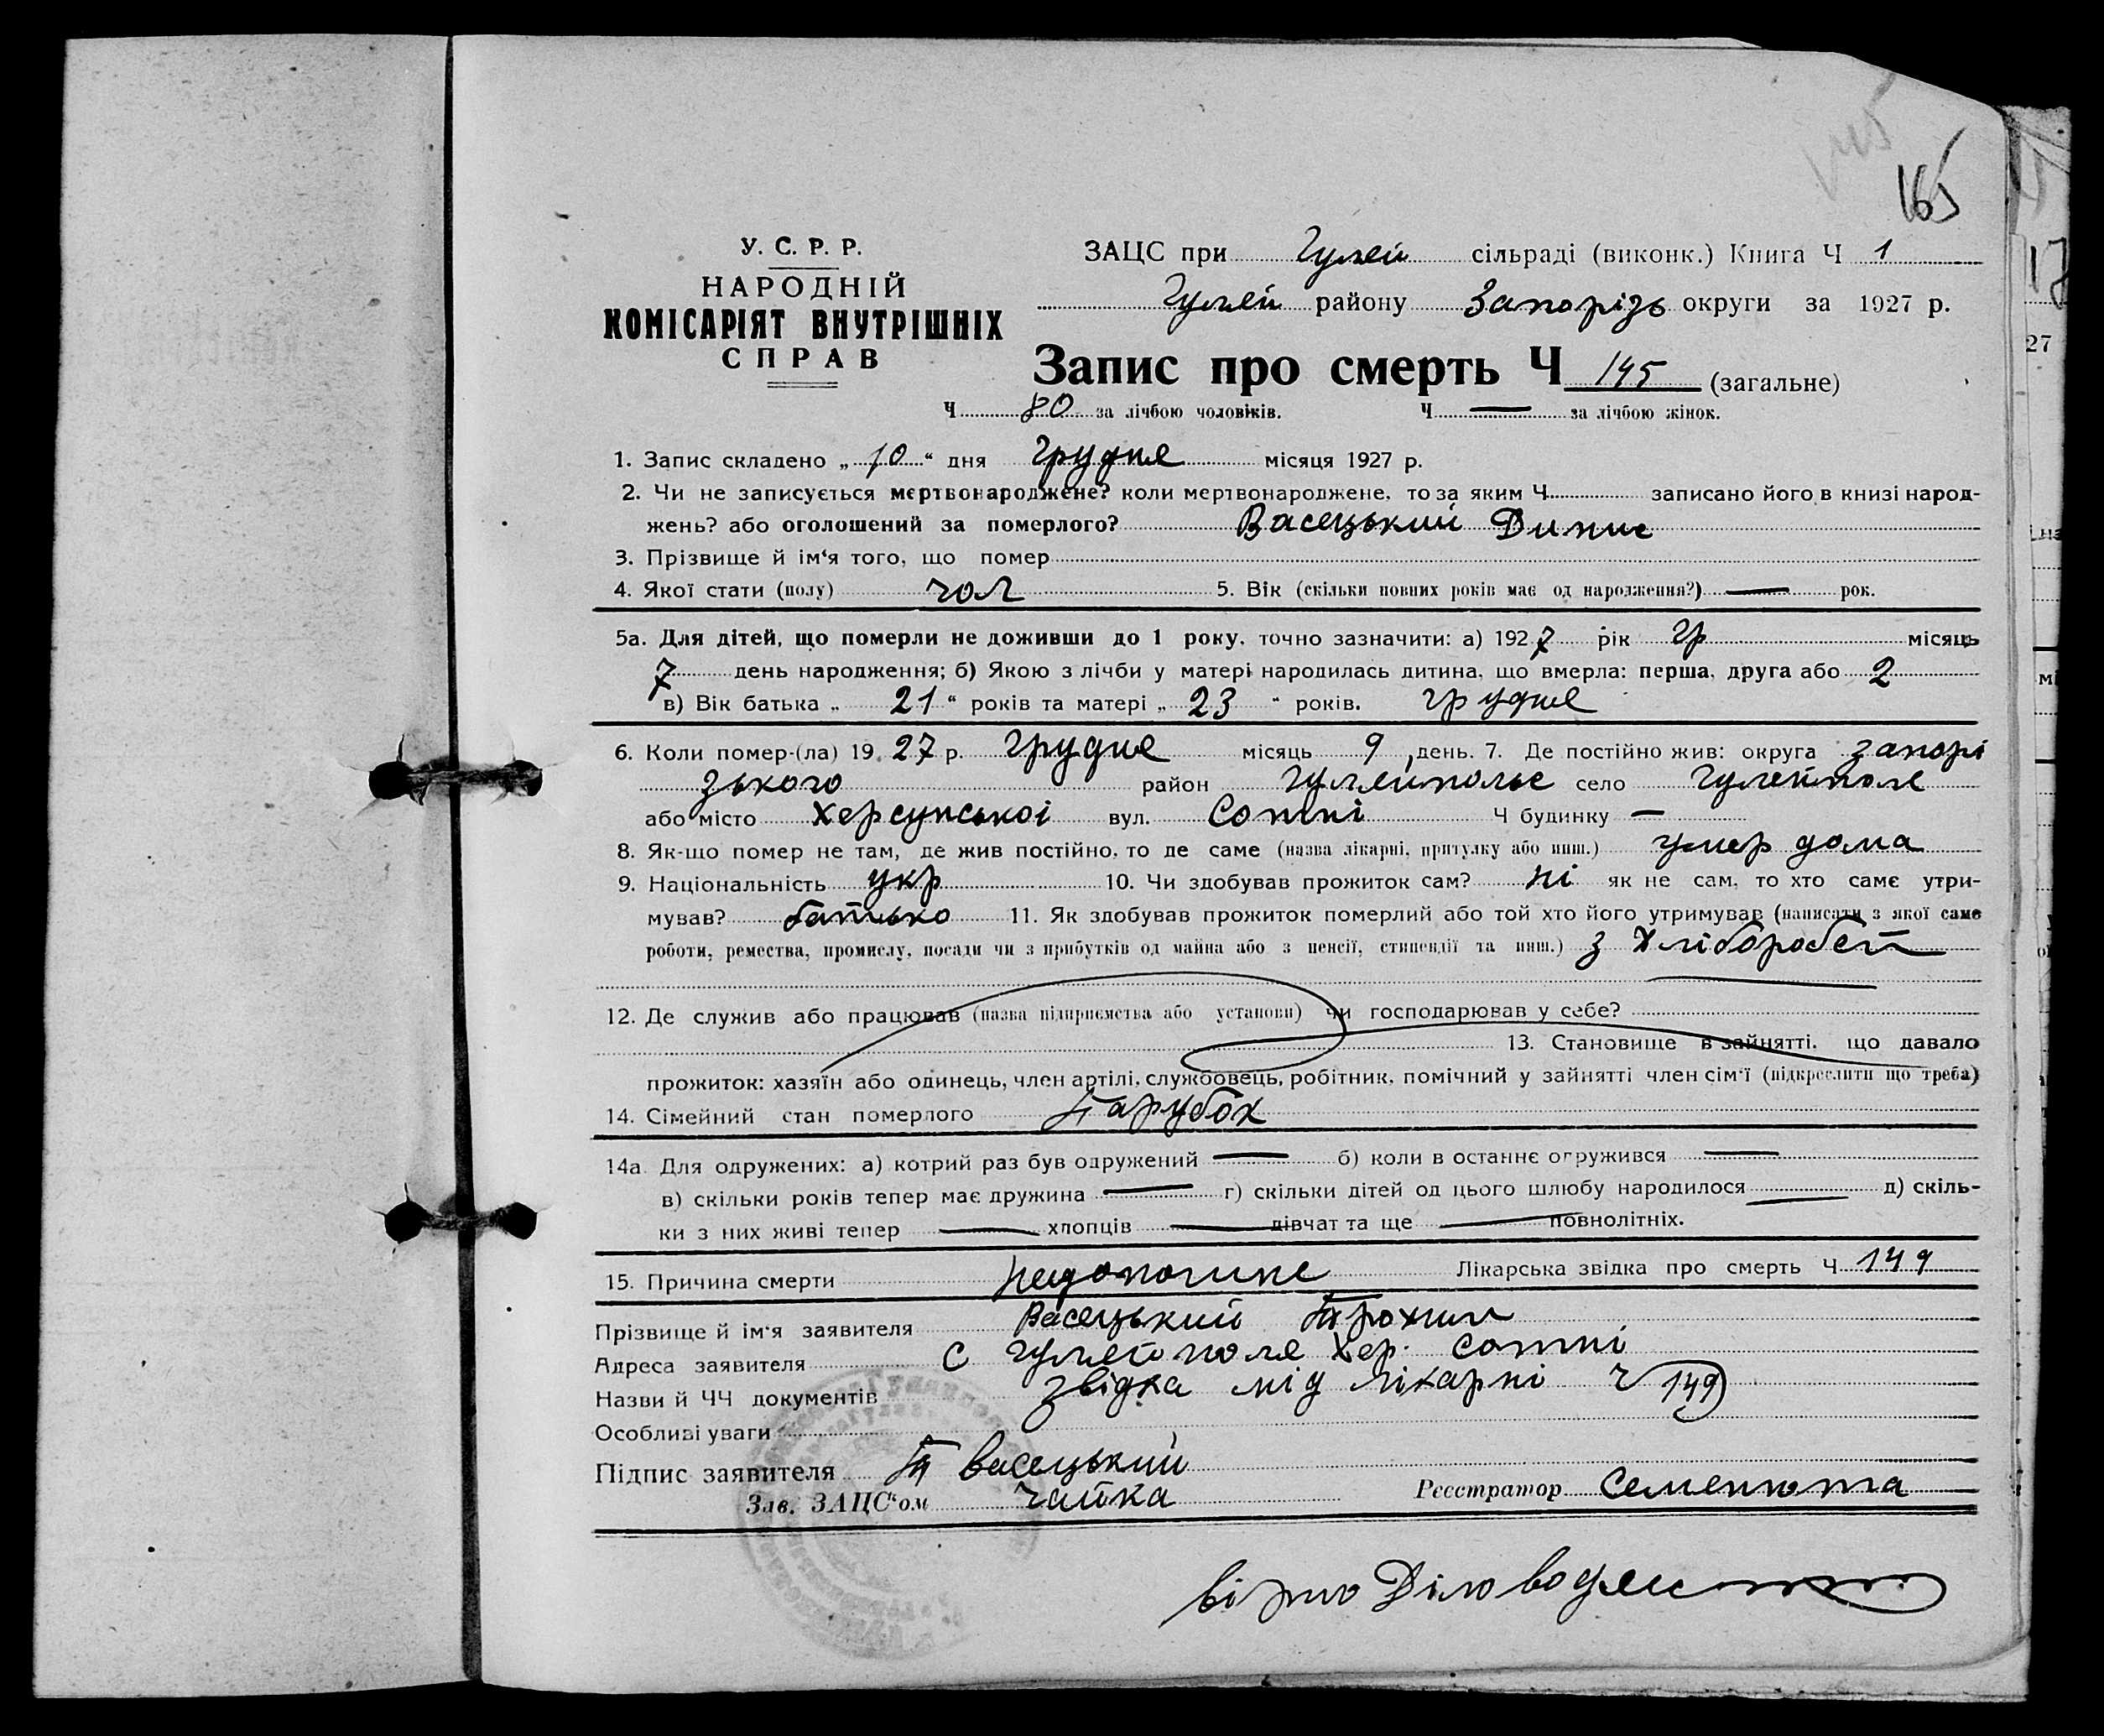 165
У. С. Р. Р.
НАРОДНІЙ
КОМІСАРІЯТ ВНУТРІШНІХ
СПРАВ
ЗАЦС при Гуляй сільраді (виконк.) Книга Ч 1
Гуляй району Запорізь округи за 1927 р.
Запис про смерть Ч 145 (загальне)
Ч 80 за лічбою чоловіків. Ч — за лічбою жінок.
1. Запис складено „ 10 “ дня грудня місяця 1927 р.
2. Чи не записується мертвонароджене? коли мертвонароджене, то за яким Ч записано його в книзі народ-
жень? або оголошений за померлого? Васецький Динис
3. Прізвище й ім‘я того, що помер
4. Якої стати (полу) чол 5. Вік (скільки повних років має од народження?) — рок.
5а. Для дітей, що померли не доживши до 1 року, точно зазначити: а) 1927 рік гр місяць
7 день народження; б) Якою з лічби у матері народилась дитина, що вмерла: перша, друга або 2
в) Вік батька „ 21 “ років та матері „ 23 “ років. грудня
6. Коли помер-(ла) 1927 р. грудня місяць 9 день. 7. Де постійно жив: округа запорі
зького район Гуляйпольс село Гуляйполе
або місто Херсунської вул. Сотні Ч будинку —
8. Як-що помер не там, де жив постійно, то де саме (назва лікарні, притулку або инш.) умер дома
9. Національність укр 10. Чи здобував прожиток сам? ні як не сам, то хто саме утри-
мував? батько 11. Як здобував прожиток померлий або той хто його утримував (написати з якої саме
роботи, ремества, промислу, посади чи з прибутків од майна або з пенсії, стипендії та инш.) з Хліборобст
12. Де служив або працював (назва підприємства або установи) чи господарював у себе?
13. Становище в зайнятті, що давало
прожиток: хазяїн або одинець, член артілі, службовець, робітник, помічний у зайнятті член сім‘ї (підкреслити що треба)
14. Сімейний стан померлого Парубок
14а. Для одружених: а) котрий раз був одружений — б) коли в останнє огружився —
в) скільки років тепер має дружина — г) скільки дітей од цього шлюбу народилося — д) скіль-
ки з них живі тепер — хлопців — дівчат та ще — повнолітніх.
15. Причина смерти недоношне Лікарська звідка про смерть Ч 149
Прізвище й ім‘я заявителя Васецький Трохим
Адреса заявителя С Гуляйполя Хер. Сотні
Назви й ЧЧ документів звідка під лікарні Ч 149
Особливі уваги
Підпис заявителя Т Васецький
Зав. ЗАЦС“ом Чайка Реєстратор Семенюта
вірно Діловод